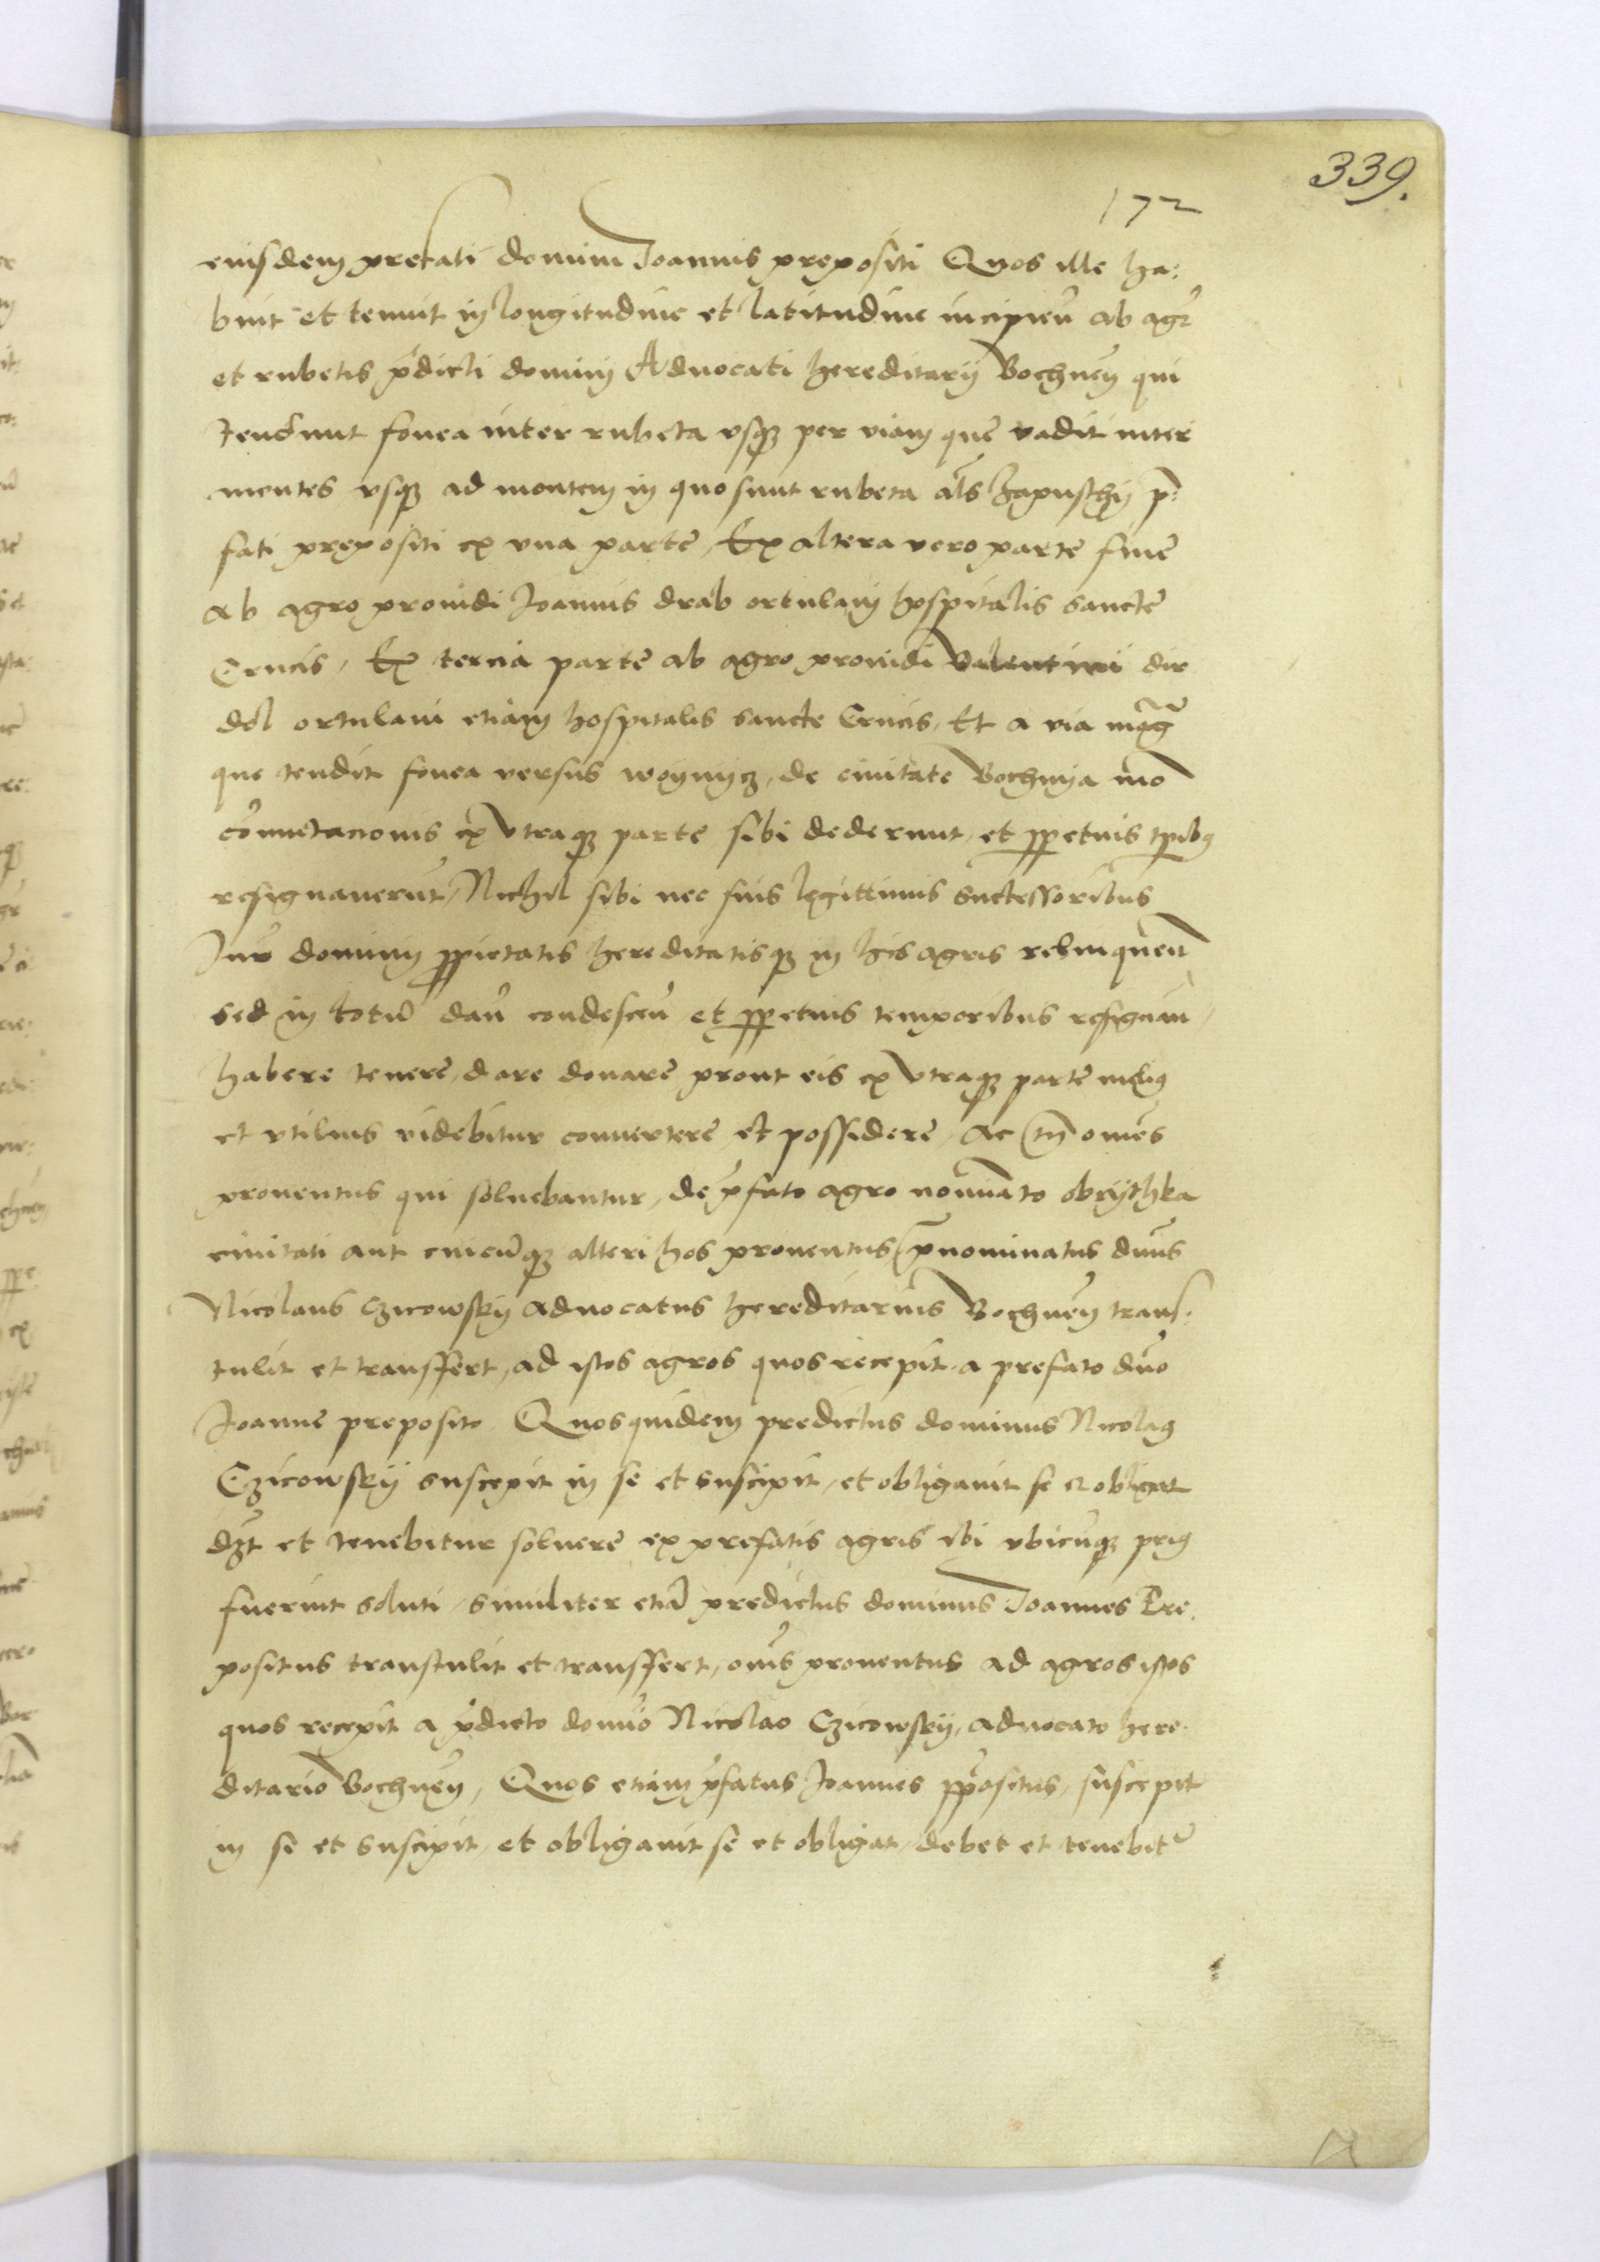 339.
172
eiusdem prefati domini Joannis prepositi Quos ille ha:
buit et tenuit in longitudine et latitudine incipien ab agr
et rubetis pdicti domini Advocati hereditarij Bochnen qui
tendunt fovea inter rubeta vsq per viam que vadit inter
montes vsq ad montem in quo sunt rubeta als p:
fati prepositi ex vna parte, Ex altera vero parte fine
ab agro providi Joannis drab ortulani hospitalis sancte
Crucis, Ex tercia parte ab agro providi Valentini dir
dol ortulani etiam hospitalis sancte Crucis, Et a via mag
que tendit fovea versus woynycz, de civitate Bochnya mo
comutacionis ex vtraq parte sibi dederunt, et ppetuis tpibus
resignaverut, Nichil sibi nec suis legittimis successoribus
Jur dominij ppietatis hereditatisq in his agris relinquen
sed in totu dan condescen et ppetuis temporibus resignan,
habere tenere, dare donare prout eis ex vtraq parte melius
et vtilius videbitur convertere et possidere, ac omes
proventus qui solvebantur, de pfato agro nominato obrythka
civitati aut cuicuq alteri hos proventus pnominatus dnus
Nicolaus Czicowsky advocatus hereditarius Bochnen trans:
tulit et transfert, ad istos agros quos recepit a prefato dno
Joanne preposito Quosquidem predictus dominus Nicolaus
Czicowskij suscepit in se et suscipit, et obligavit se et obligat
dzt et tenebitur solvere ex prefatis agris ibi vbicuq prius
fuerint soluti, similiter etia predictus dominus Joannes Pre:
positus transtulit et transfert, omes proventus ad agros istos
quos recepit a pdicto domno Nicolao Czicowskij, advocato here:
ditario Bochnen, Quos etiam pfatus Joannes ppositus, suscepit
in se et suscipit, et obligavit se et obligat, debet et tenebit